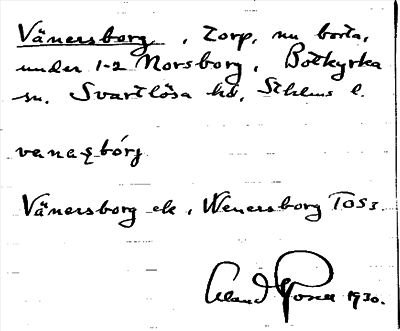 Vänersborg, Torp, nu borta,
under 1-2 Norsborg, Botkyrka
sn. Svartlösa hd, Sthlms l.
Vänersborg ek, Wenersborg TOS3.
1930.